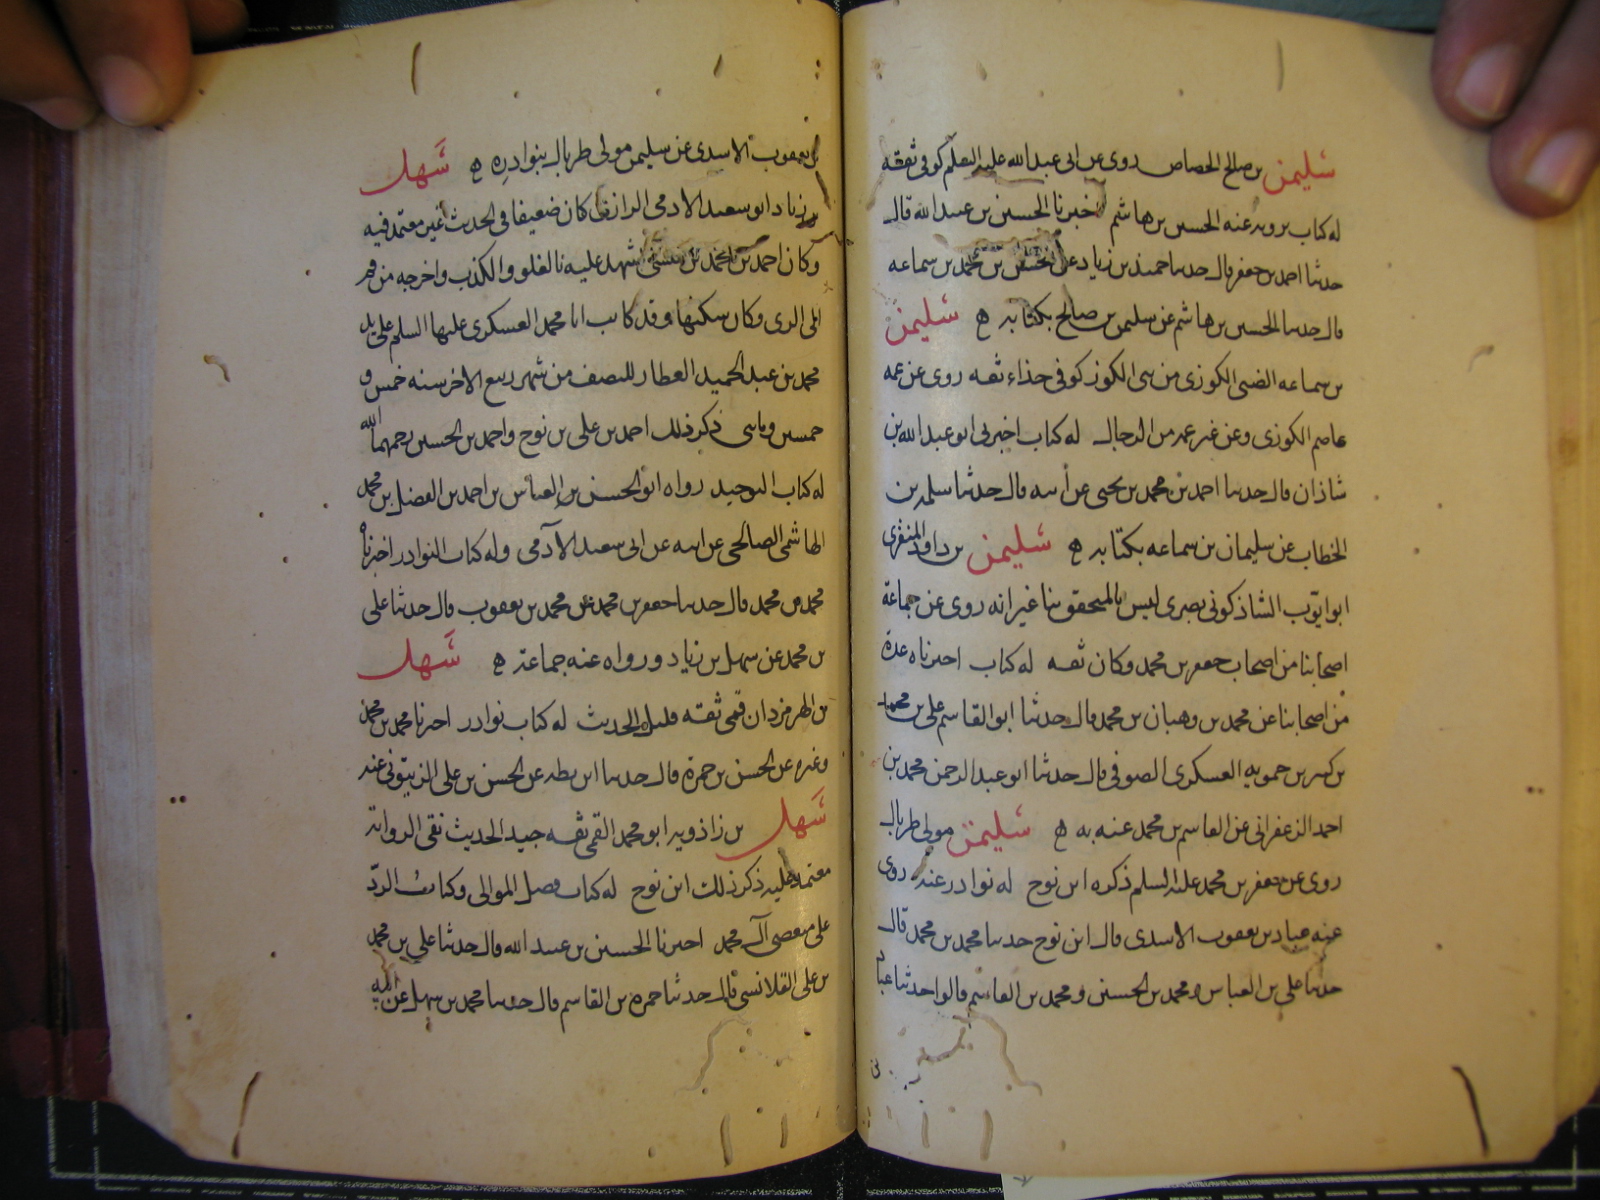 سليمن بن صالح الجصاص روى عن ابى عبدالله عليه السلم كوفى ثقة
له كتاب يرويه عنه الحسين بن هاشم اخبرنا الحسين بن عبيدالله قال
حدثنا احمد بن جعفر قال حدثنا حميد بن زياد عن الحسن بن محمد بن سماعه
قال حدثنا الحسين بن هاشم عن سليمن بن صالح بكتابه ه سليمن
بن سماعه الضبى الكوزى من بنى الكوز كوفى حذاء ثقه روى عن عمه
عاصم الكوزى وعن غير عمه من الرجال له كتاب اخبرنى ابو عبدالله بن
شاذان قال حدثنا احمد بن محمد بن يحيى عن ابيه قال حدثنا سلمه بن
الخطاب عن سليمان بن سماعه بكتابه ه سليمن بن داود المنقرى
ابو ايوب الشاذكونى بصرى ليس بالمتحقق بنا غير انه روى عن جماعة
اصحابنا من اصحاب جعفر بن محمد وكان ثقه له كتاب اخبرناه عدة
من اصحابنا عن محمد بن وهبان بن محمد قال حدثنا ابو القاسم على بن محمد
بن كثير بن حمويه العسكرى الصوفى قال حدثنا ابو عبد الرحمن محمد بن
احمد الزعفرانى عن القاسم بن محمد عنه به ه سليمن مولى طربال
روى عن جعفر بن محمد عليه السلم ذكره ابن نوح له نوادر عنه روى
عنه عباد بن يعقوب الاسدى قال ابن نوح حدثنا محمد بن محمد قال
حدثنا على بن العباس ومحمد بن الحسين ومحمد بن القاسم قالوا حدثنا عباد
بن يعقوب الاسدى عن سليمن مولى طربال بنوادره ه سهل
بن زياد ابو سعيد الادمى الرازى كان ضعيفا فى الحديث غير معتمد فيه
وكان احمد بن محمد بن عيسى يشهد عليه بالغلو والكذب واخرجه من قم
الى الرى وكان يسكنها وقد كاتب ابا محمد العسكرى عليها السلم على يد
محمد بن عبد الحميد العطار للنصف من شهر ربيع الاخر سنه خمس و
خمسين وماتى ذكر ذلك احمد بن على بن نوح واحمد بن الحسين رحمهما الله
له كتاب التوحيد رواه ابو الحسن بن العباس بن احمد بن الفضل بن محمد
الهاشمى الصالحى عن ابيه عن ابى سعيد الآدمى وله كتاب النوادر اخبرناه
محمد بن محمد قال حدثنا جعفر بن محمد عن محمد بن يعقوب قال حدثنا على
بن محمد عن سهل بن زياد ورواه عنه جماعة ه سهل
بن الهرمزدان قمى ثقه قليل الحديث له كتاب نوادر اخبرنا محمد بن محمد
وغيره عن الحسن بن حمزة قال حدثنا ابن بطه عن الحسن بن على الزيتونى عنه
سهل بن زاذويه ابو محمد القمى ثقه جيد الحديث نقى الرواية
معتمد عليه ذكر ذلك ابن نوح له كتاب فضل الموالى وكتاب الرد
على مبغضى آل محمد اخبرنا الحسين بن عبيد الله قال حدثنا على بن محمد
بن على القلانسى قال حدثنا حمزه بن القاسم قال حدثنا محمد بن سهل عن ابيه